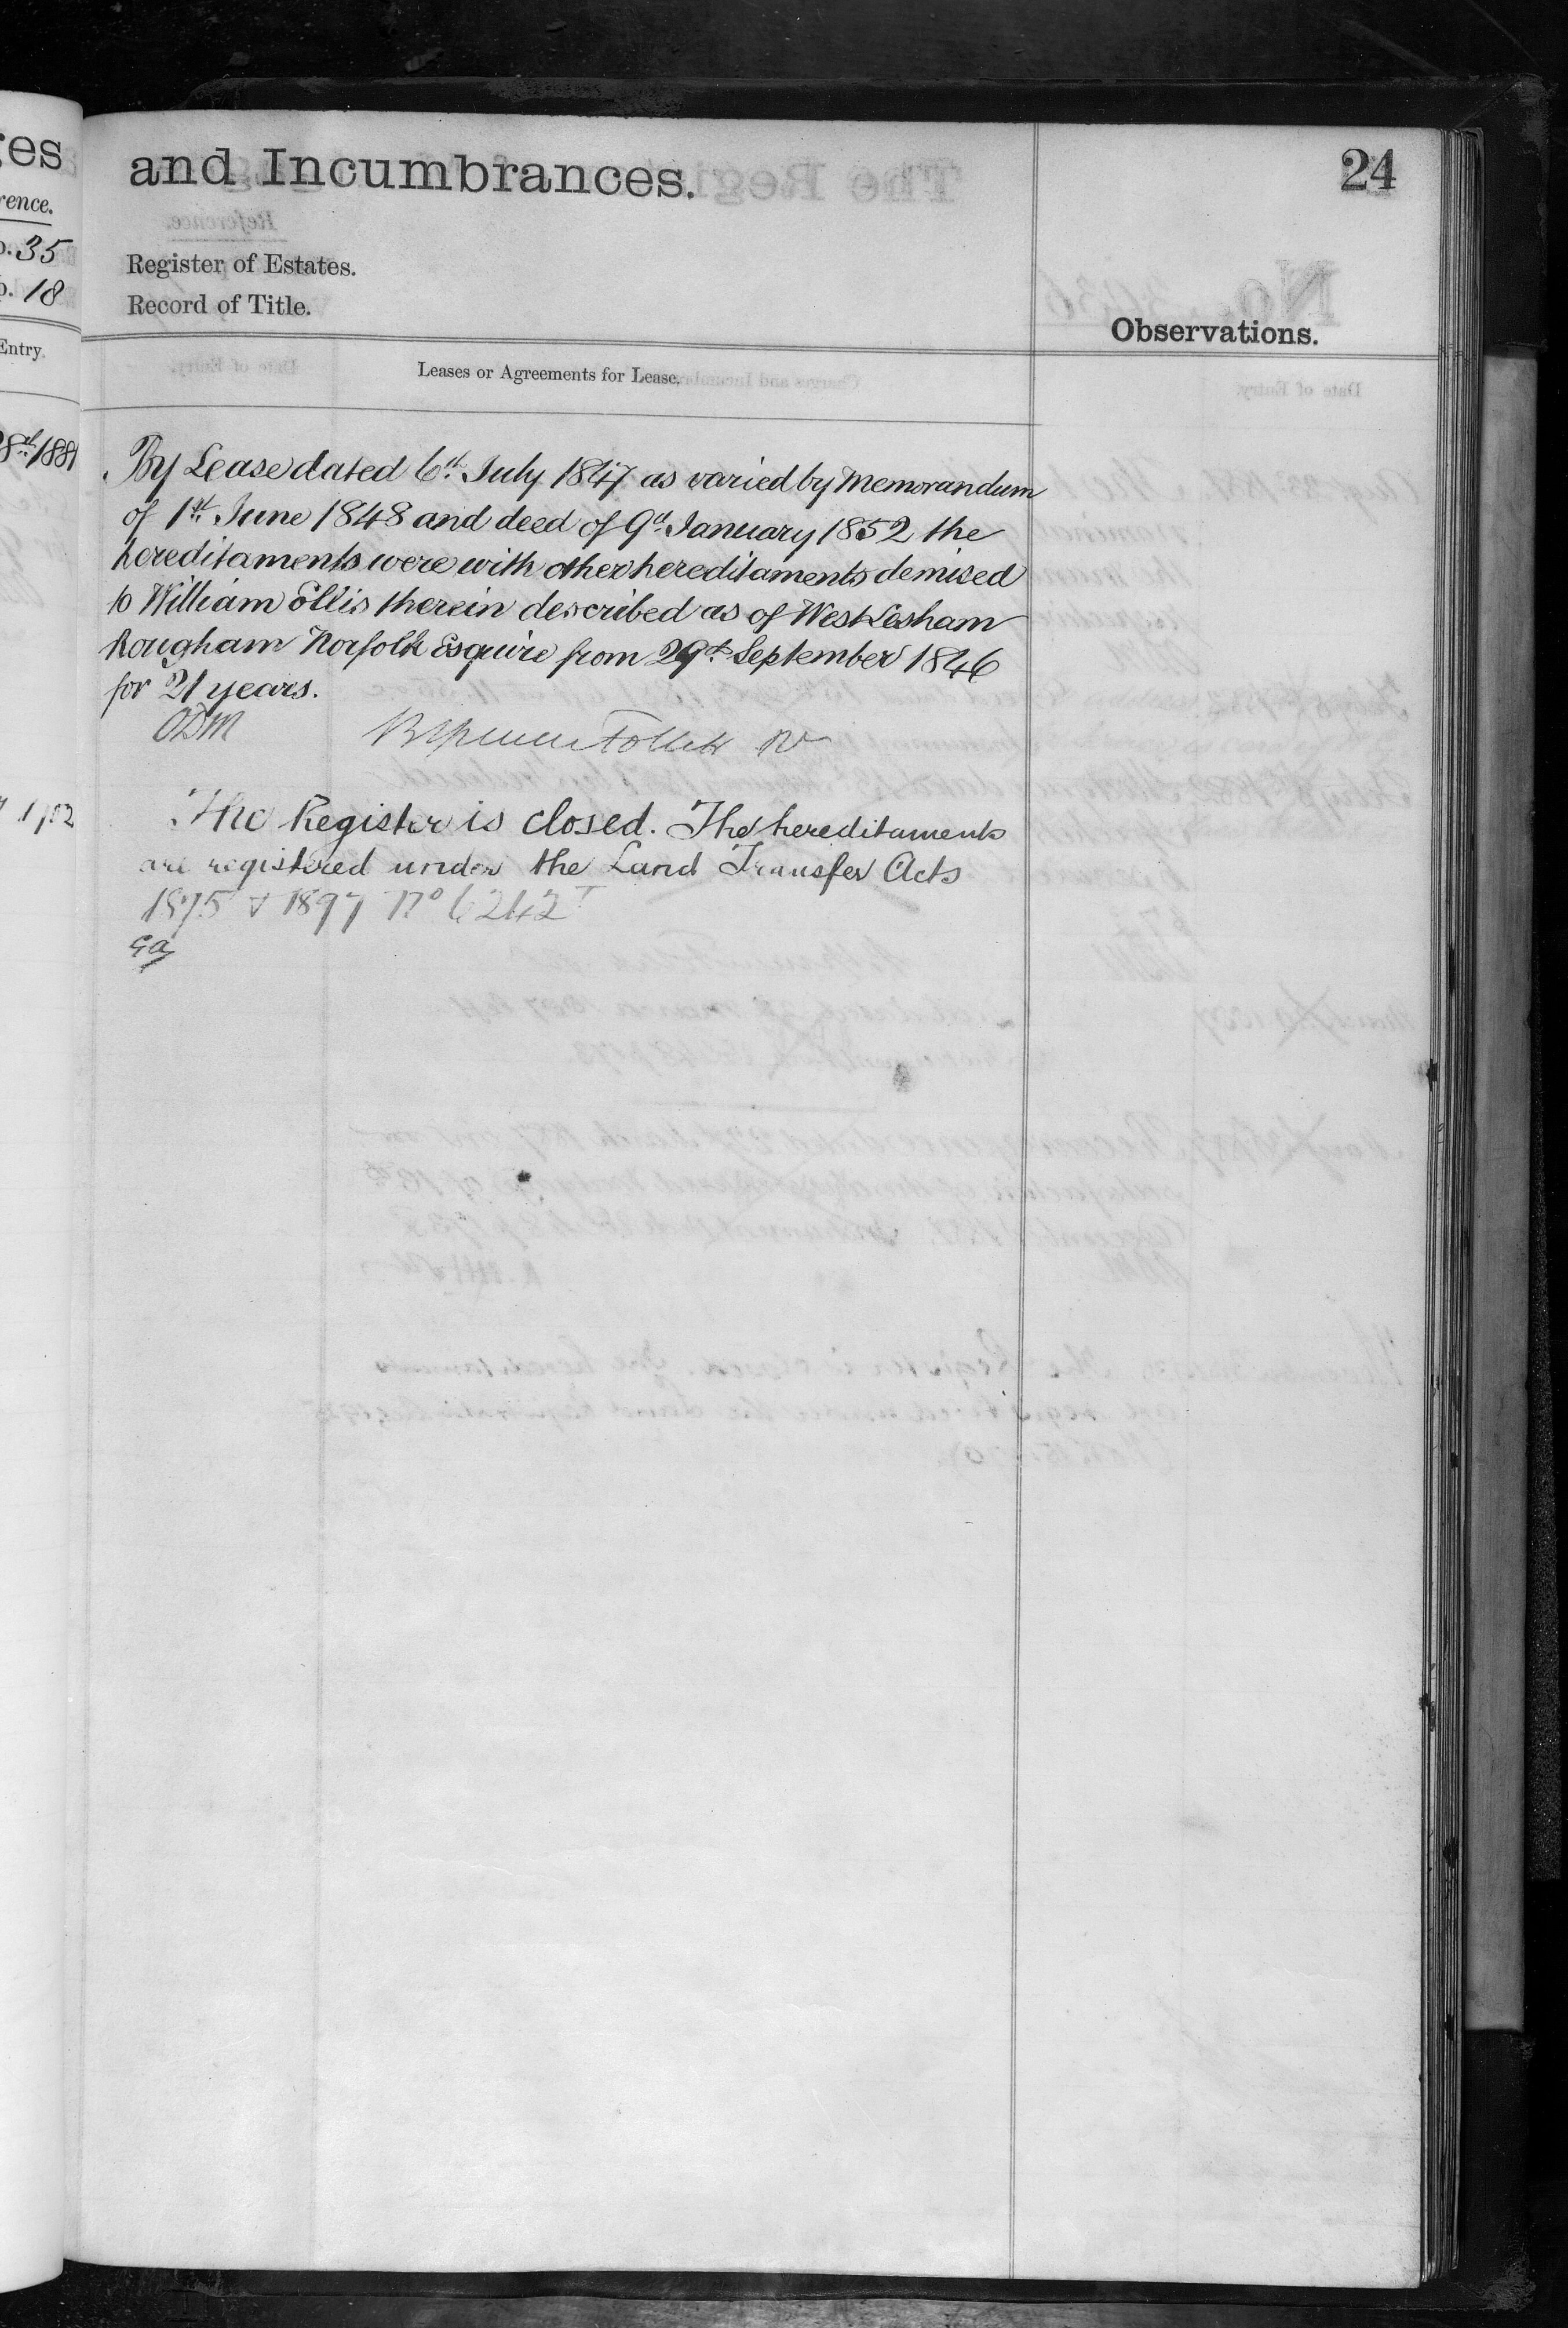 and Incumbrances.
24
Register of Estates.
Record of Title.
Observations.
Leases or Agreements for Lease.
35
18
Entry
1881
By Lease dated 6th July 1847 as varied by Memorandum
of 1st June 1848 and deed of 9th January 1852 the
hereditaments were with other hereditaments demised
to William Ellis therein described as of West Lesham
Rougham Norfolk Esquire from 29th September 1846
for 21 years.
ODM
Follett
The Register is closed. The hereditaments
are registered under the Land Transfer Acts
1875 & 1897 No 6242